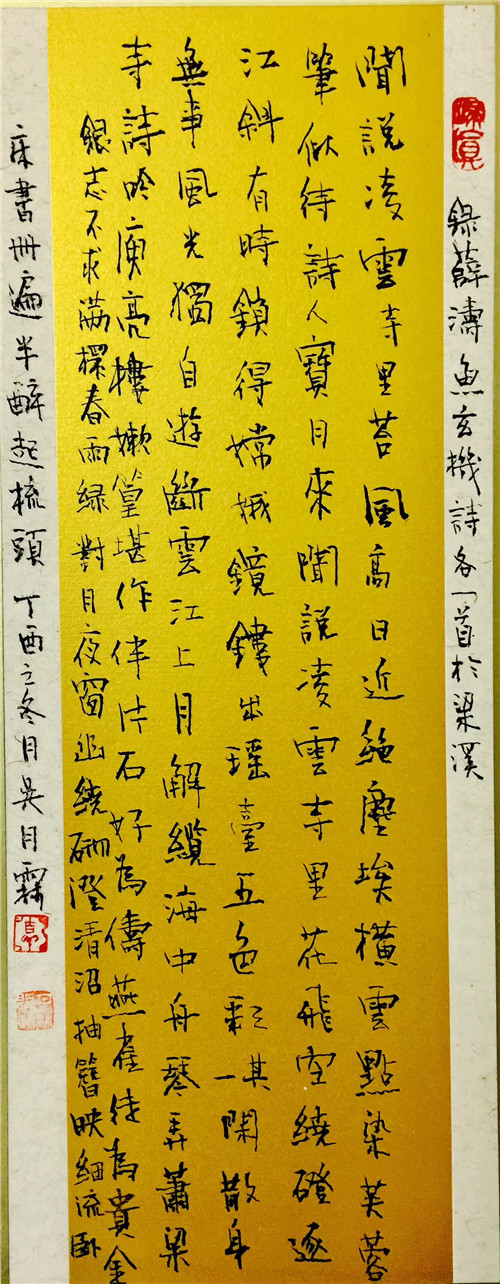 錄薛濤魚玄機詩各一首於梁溪
聞說凌雲寺里苔風高日近絕塵埃橫雲點染芙蓉
筆似待詩人寶月來聞說凌雲寺里花飛空繞磴逐
江斜有時鎖得嫦娥鏡鏤出瑤臺五色閑散身
無事風光獨自遊斷雲江上月解纜海中舟琴弄蕭梁
寺詩吟庾亮樓嫩篁堪作伴片石好為儔燕雀徒為貴金
銀志不求滿春雨綠對月夜窗幽繞砌澄清沼抽簪映細流臥
床書冊遍半醉起梳頭丁酉立冬月吳月霖